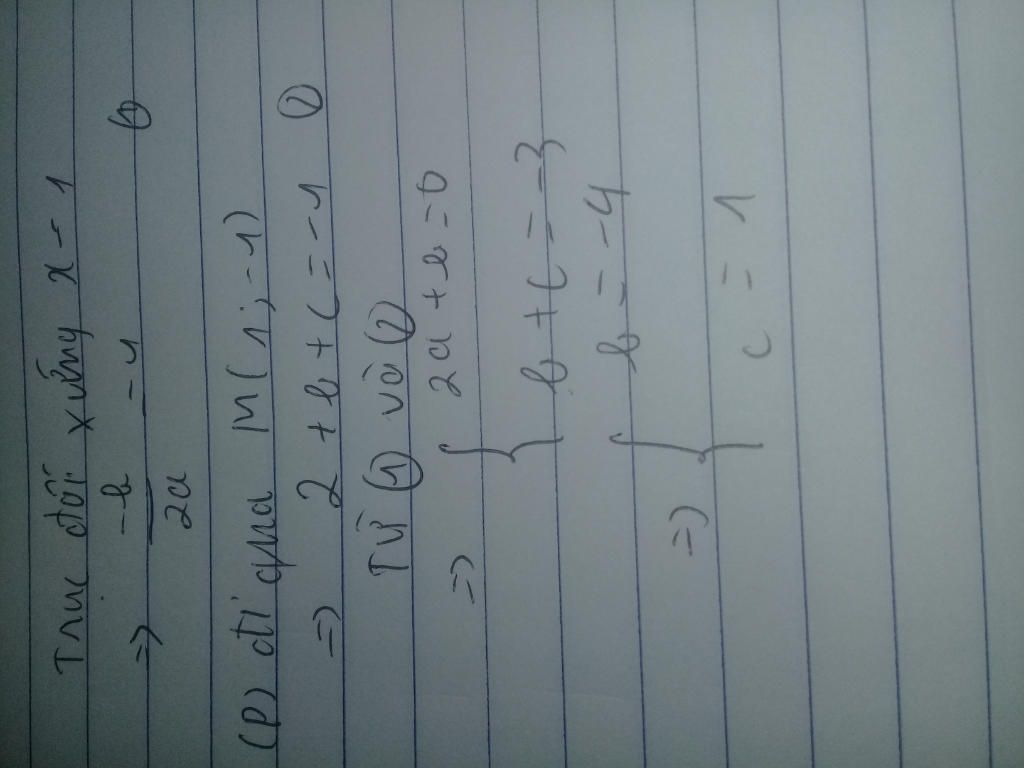 Trục đối xứng x = 1
=> -b/2a = 1 (1)
(P) đi qua M(1; -1)
=> 2 + b + c = -1 (2)
Từ (1) và (2)
=> { 2a + b = 0
b + c = -3
=> { b = -4
c = 1